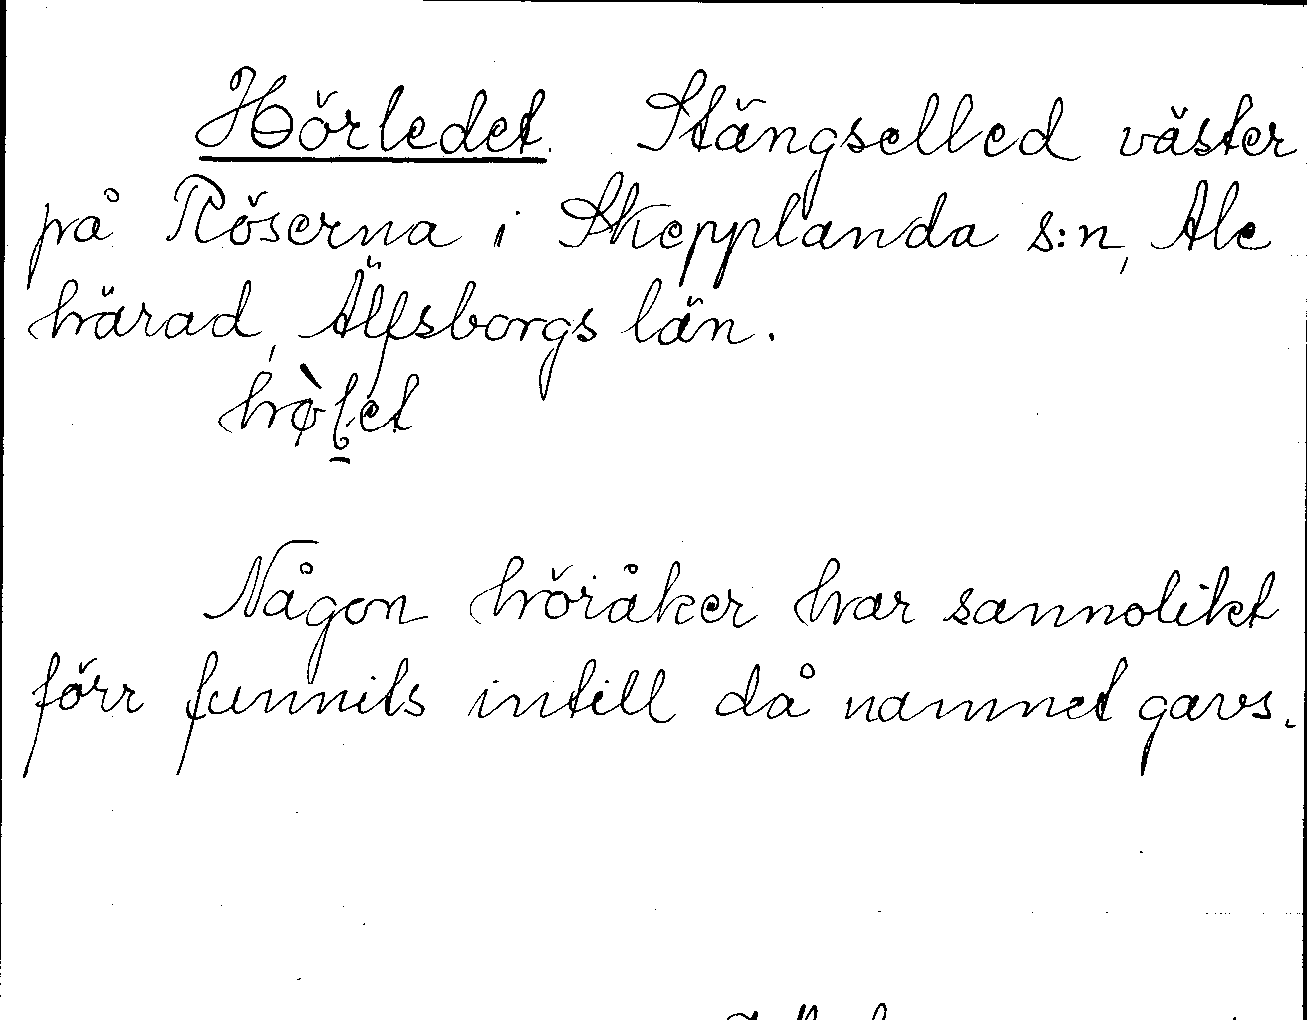 Hörledet. Stängselled väster
på Röserna i Skepplanda s:n, Ale
härad, Älfsborgs län.

Någon höråker har sannolikt
förr funnits intill då namnet gavs.